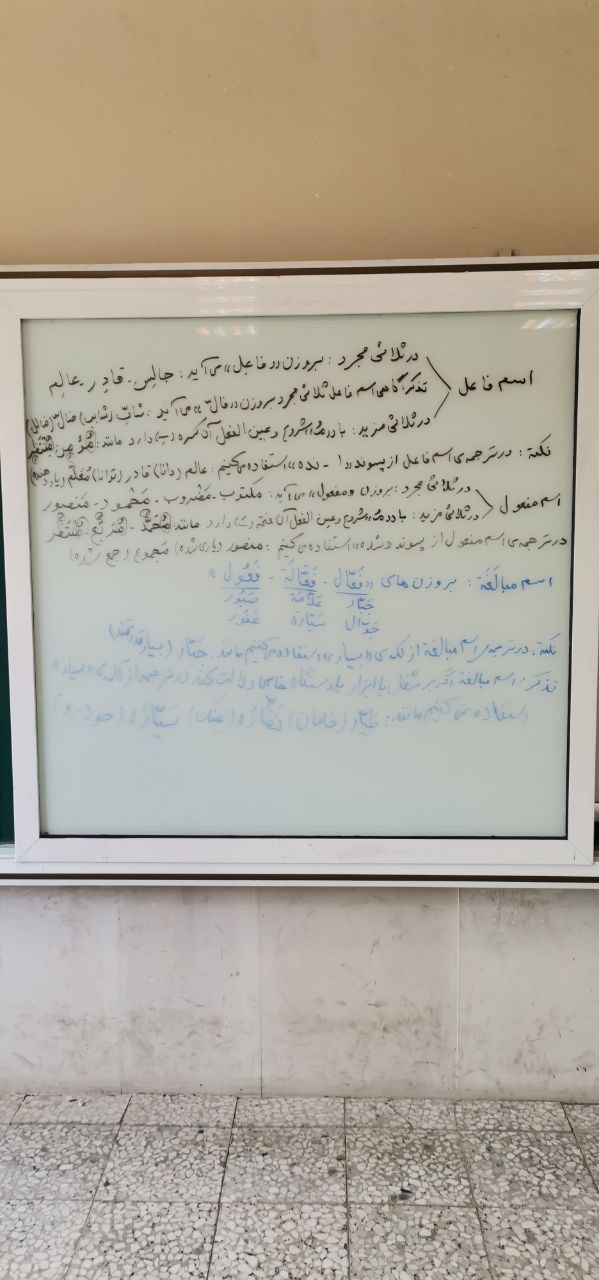 در ثلاثی مجرد : بروزن «فاعِل» می‌آید : جالِس - قادِر - عالِم
اسم فاعل
تذکر: گاهی اسم فاعل ثلاثی مجرد بروزن «فالّ» می‌آید : شابّ (شابِب) ضالّ (ضالِل)
در ثلاثی مزید : با «مُـ» شروع و عین الفعل آن کسره (ـِ) دارد مانند : مُؤمِن - مُنتَظِر
نکتة : در ترجمه‌ی اسم فاعل از پسوند «ا - نده» استفاده می‌کنیم : عالم (دانا) قادر (توانا) مُعَلِّم (یاد دهنده)
در ثلاثی مجرد : بروزن «مفعول» می‌آید : مکتوب - مَضروب - مَحمود - مَنصور
اسم مفعول
در ثلاثی مزید : با «مُـ» شروع و عین الفعل آن فتحة (ـَ) دارد مانند : مُحَمَّد - مُنتَظَر
در ترجمه‌ی اسم مفعول از پسوند «شده» استفاده می‌کنیم : منصور (یاری شده) مَجموع (جمع شده)
اسم مبالَغَة : بروزن های «فَعّال - فَعّالَة - فَعُول»
جَبّار عَلّامَة صَبُور
جَوّال سَیّارَة غَفُور
نکتة : در ترجمه‌ی اسم مبالغة از کلمه‌ی «بسیار» استفاده می‌کنیم مانند : جَبّار (بسیار قدرتمند)
تذکر : اسم مبالغة اگر بر شغل یا ابزار یا دستگاه خاصی دلالت کند در ترجمه از کلمه‌ی «بسیار»
استفاده نمی‌کنیم مانند : طَیّار (خلبان) نَظّارَة (عینک) سَیّارَة (خودرو)